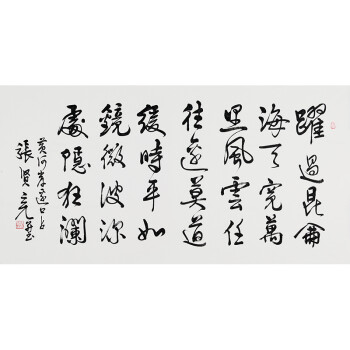 躍過昆侖
海天寬萬
里風雲任
往還莫道
緩時平如
鏡微波深
處隱狂瀾
黃河岸邊口占
張賢亮